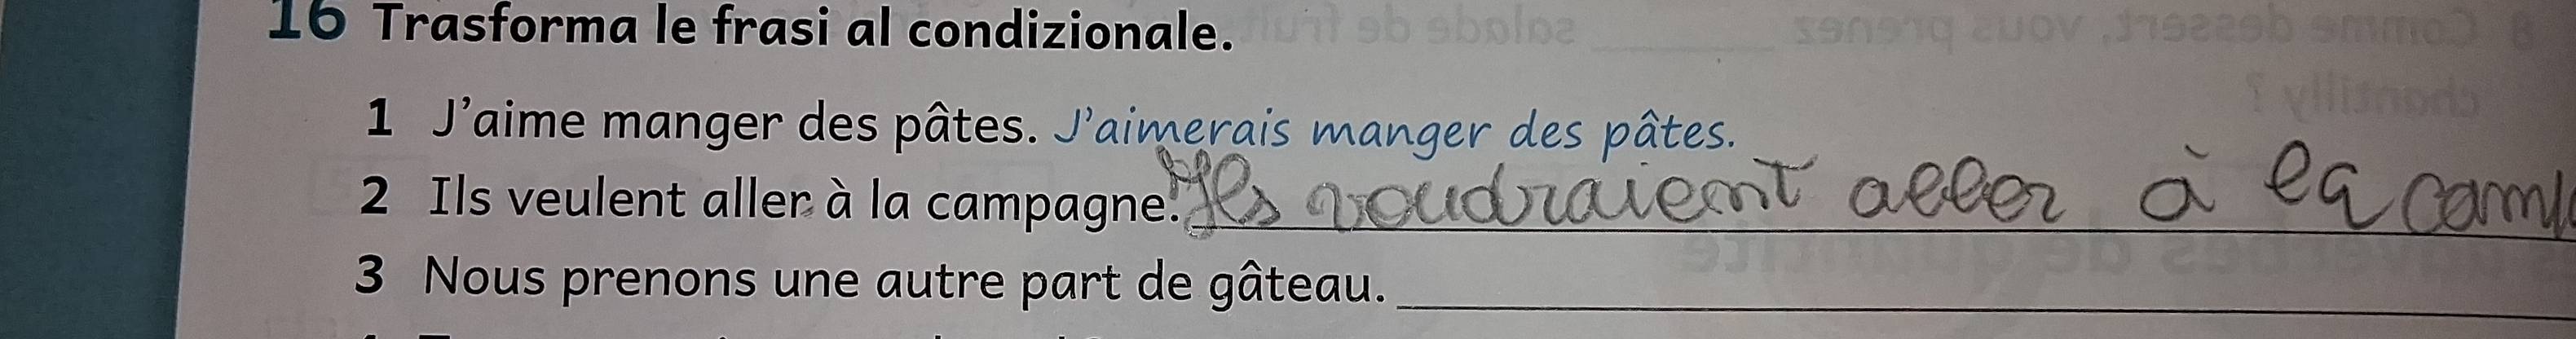 16 Trasforma le frasi al condizionale.
1 J'aime manger des pâtes. J'aimerais manger des pâtes.
2 Ils veulent aller à la campagne. Ils voudraient aller à la
3 Nous prenons une autre part de gâteau.